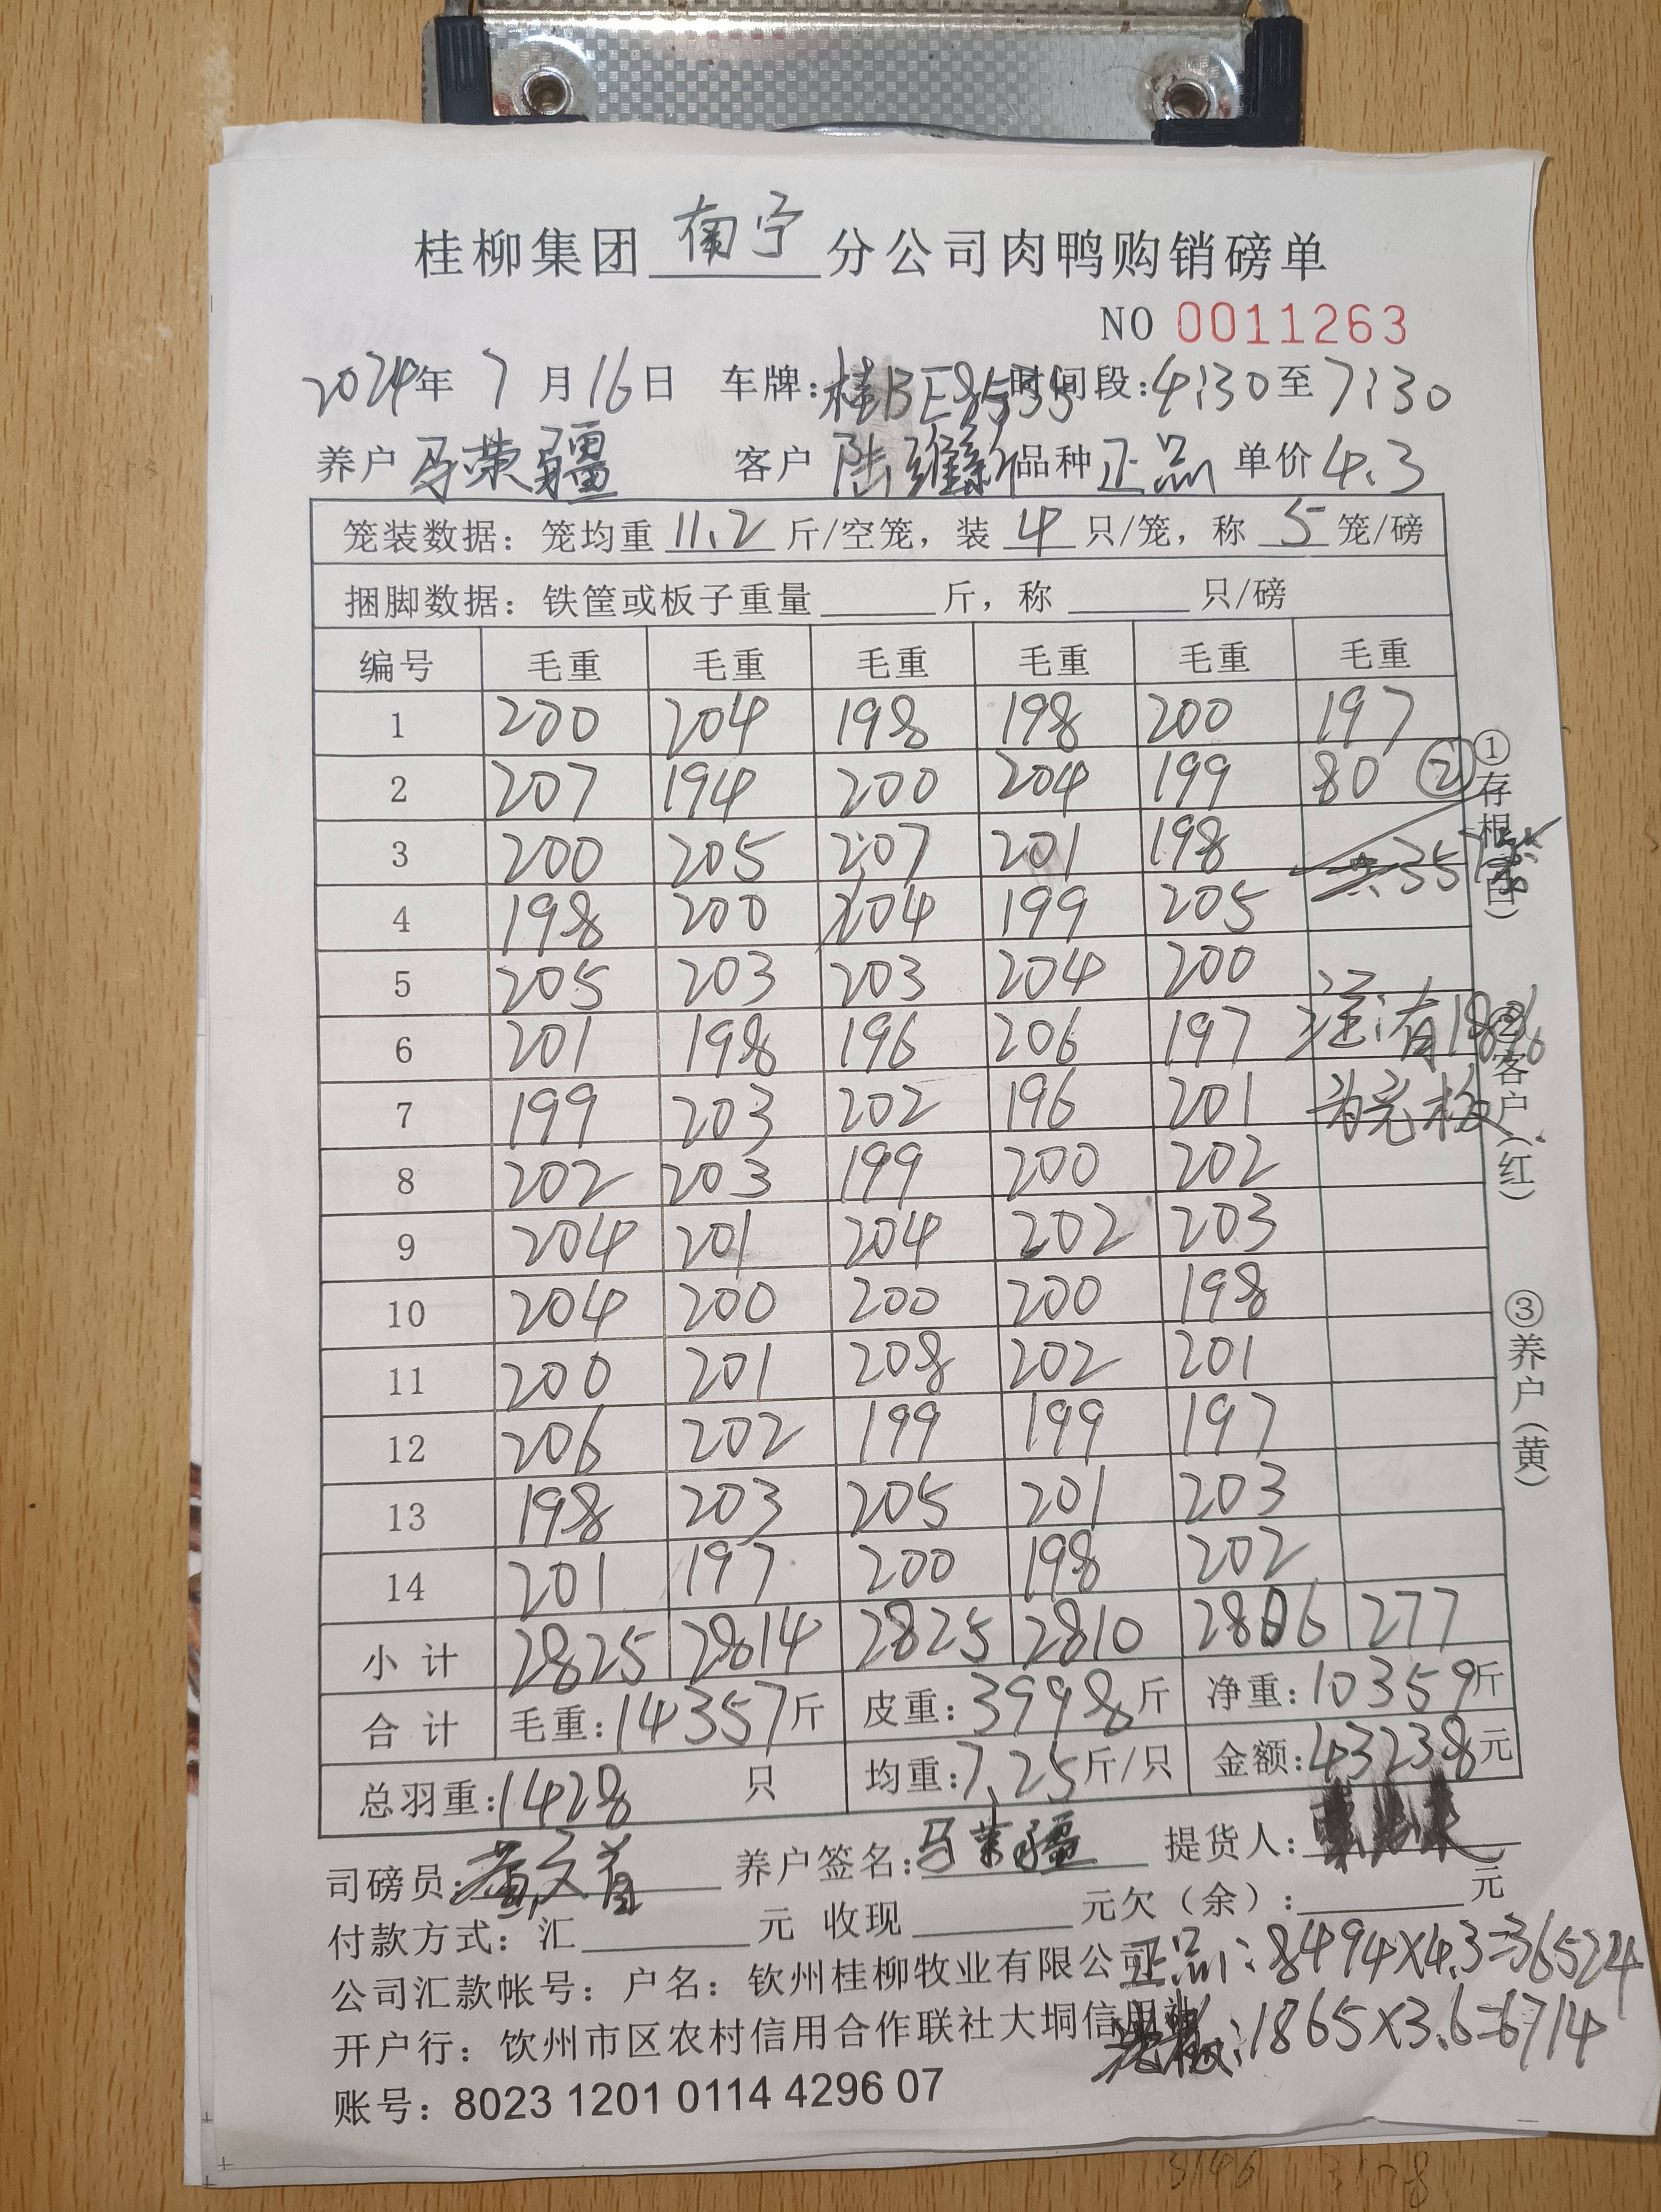 桂柳集团 南宁 分公司肉鸭购销磅单
NO 0011263
2024年 7 月 16 日 车牌:桂BE8535 时间段:4:30 至 7:30
养户 马荣疆 客户 陆维新 品种 正品 单价 4.3
笼装数据: 笼均重 11.2 斤/空笼, 装 4 只/笼, 称 5 笼/磅
捆脚数据: 铁筐或板子重量______斤, 称______只/磅
编号 毛重 毛重 毛重 毛重 毛重 毛重
1 200 204 198 198 200 197
2 207 194 200 204 199 80 ②
3 200 205 207 201 198
共35
4 198 200 204 199 205
5 205 203 203 204 200
6 201 198 196 206 197 注:有186
7 199 203 202 196 201 为光板
8 202 203 199 200 202
9 204 201 204 202 203
10 204 200 200 200 198
11 200 201 208 202 201
12 206 202 199 199 197
13 198 203 205 201 203
14 201 197 200 198 202
小计 2825 2814 2825 2810 2806 277
合计 毛重:14357斤 皮重:3998斤 净重:10359斤
总羽重:1428 只 均重:7.25斤/只 金额:43238元
①存根(白) ②客户(红) ③养户(黄)
司磅员: 养户签名:马荣疆 提货人:
付款方式: 汇______元 收现______元欠(余):______元
公司汇款帐号: 户名: 钦州桂柳牧业有限公司
正品:8494×4.3=36524
开户行: 钦州市区农村信用合作联社大垌信用社
光板:1865×3.6=6714
账号: 8023 1201 0114 4296 07
3146 3178